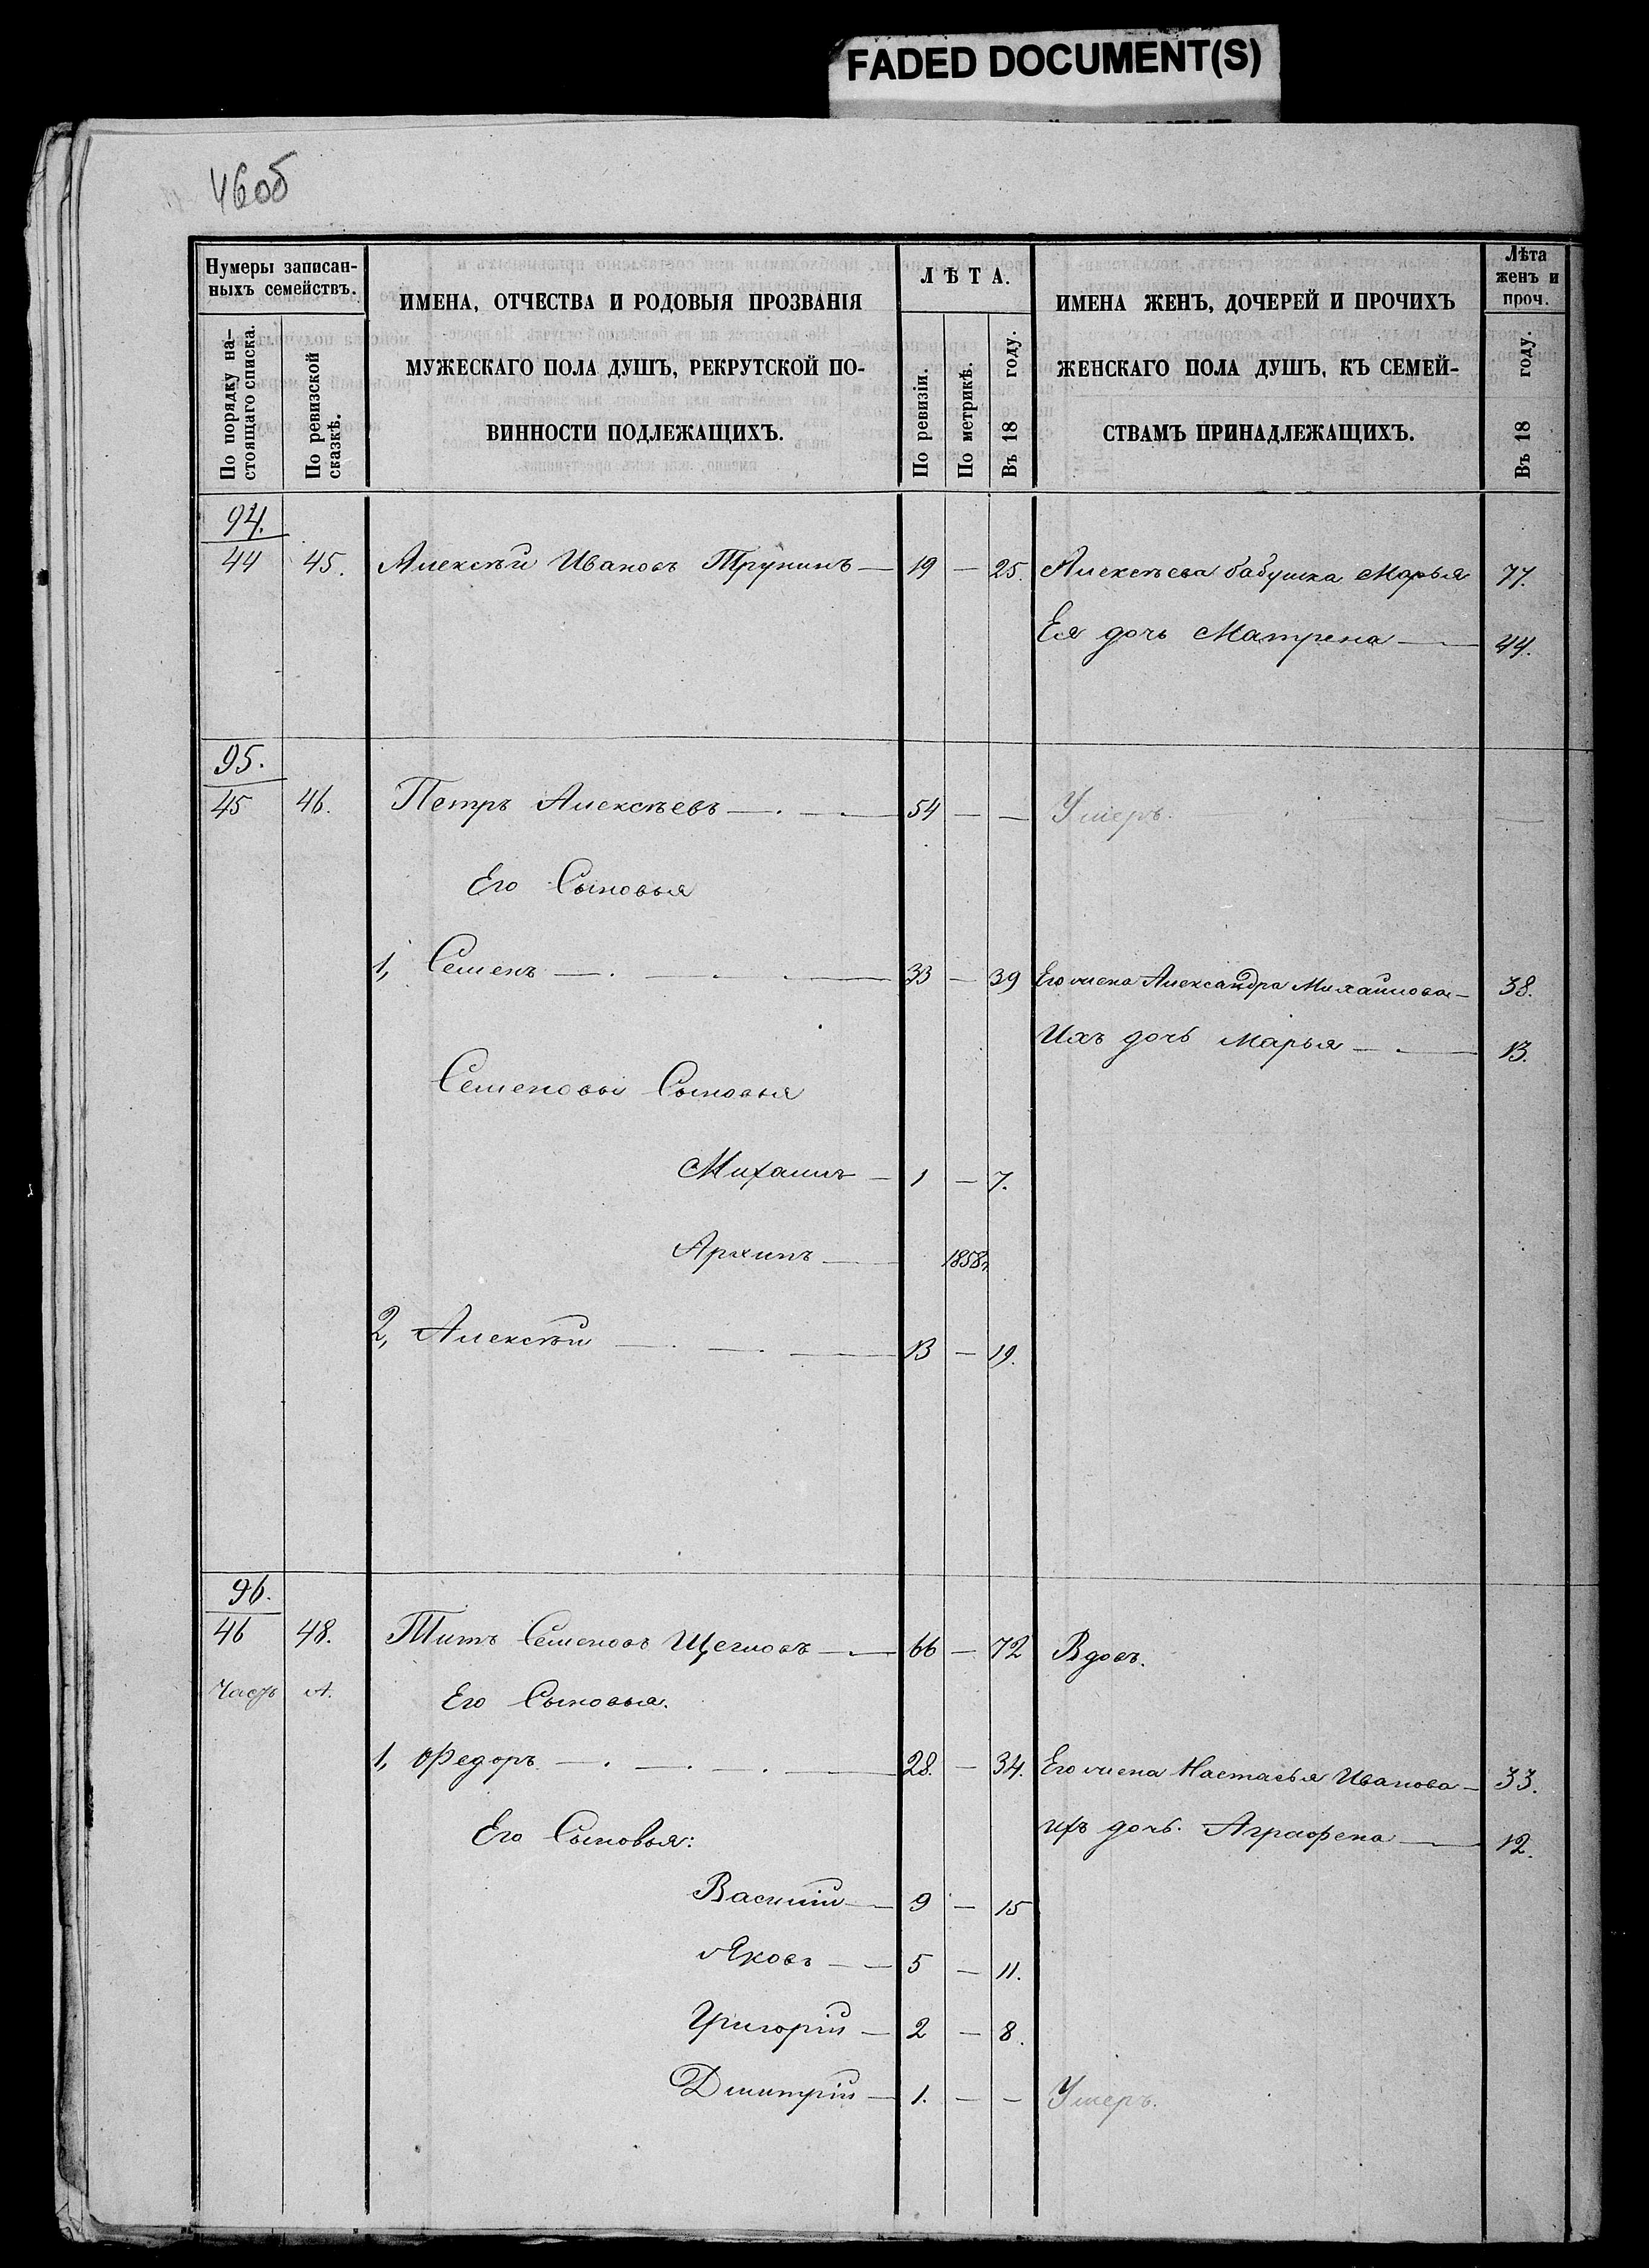 FADED DOCUMENT(S)
46об
Нумеры записан-
ныхъ семействъ.
По порядку на-
стоящаго списка.
По ревизской
сказкѣ.
ИМЕНА, ОТЧЕСТВА И РОДОВЫЯ ПРОЗВАНІЯ
МУЖЕСКАГО ПОЛА ДУШЪ, РЕКРУТСКОЙ ПО-
ВИННОСТИ ПОДЛЕЖАЩИХЪ.
ЛѢТА.
По ревизіи.
По метрикѣ.
Въ 18 году.
ИМЕНА ЖЕНЪ, ДОЧЕРЕЙ И ПРОЧИХЪ
ЖЕНСКАГО ПОЛА ДУШЪ, КЪ СЕМЕЙ-
СТВАМЪ ПРИНАДЛЕЖАЩИХЪ.
Лѣта
женъ и
проч.
Въ 18 году.
94.
44 45. Алексѣй Ивановъ Трунинъ — 19 — 25. Алексѣева бабушка Марья 77.
Ея дочь Матрена — 44.
95.
45 46. Петръ Алексѣевъ — 54 — — Умеръ.
Его Сыновья
1, Семенъ — 33 — 39 Его жена Александра Михайлова — 38.
Ихъ дочь Марья — 13.
Семеновы Сыновья
Михаилъ — 1 — 7.
Архипъ — 1858г.
2, Алексѣй — 13 — 19.
96.
46 48. Титъ Семеновъ Щегловъ — 66 — 72 Вдовъ.
Часть А. Его Сыновья.
1, Федоръ — 28. — 34. Его жена Настасья Иванова — 33.
Ихъ дочь Аграфена — 12.
Его Сыновья:
Василій — 9 — 15
Яковъ — 5 — 11.
Григорій — 2 — 8.
Дмитрій — 1. — — Умеръ.